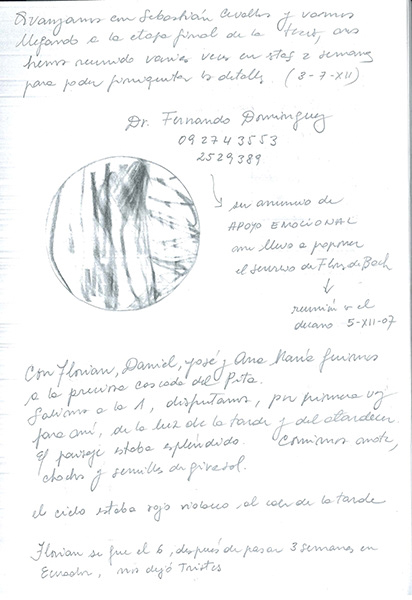 Avanzamos con Sebastián Cevallos y vamos
llegando a la etapa final de la tesis, nos
hemos reunido varias veces en stas 2 semanas
para poder finiquitar los detalles. (3-7-XII)
Dr. Fernando Domínguez
092743553
2529389
su anuncio de
APOYO EMOCIONAL
me llevo a proponer
el servicio de Flrs. de Bach
reunión el
decano 5-XII-07
Con Florian, Daniel, José y Ana María fuimos
a la preciosa cascada del Pita.
Salimos a la 1, disfrutamos, por primera vez
para mí, de la luz de la tarde y del atardecer.
El paisaje estaba espléndido. Comimos mote,
chochos y semillas de girasol.
el cielo estaba rojo violaceo, al caer de la tarde
Florian se fue el 6, después de pasar 3 semanas en
Ecuador, nos dejó tristes